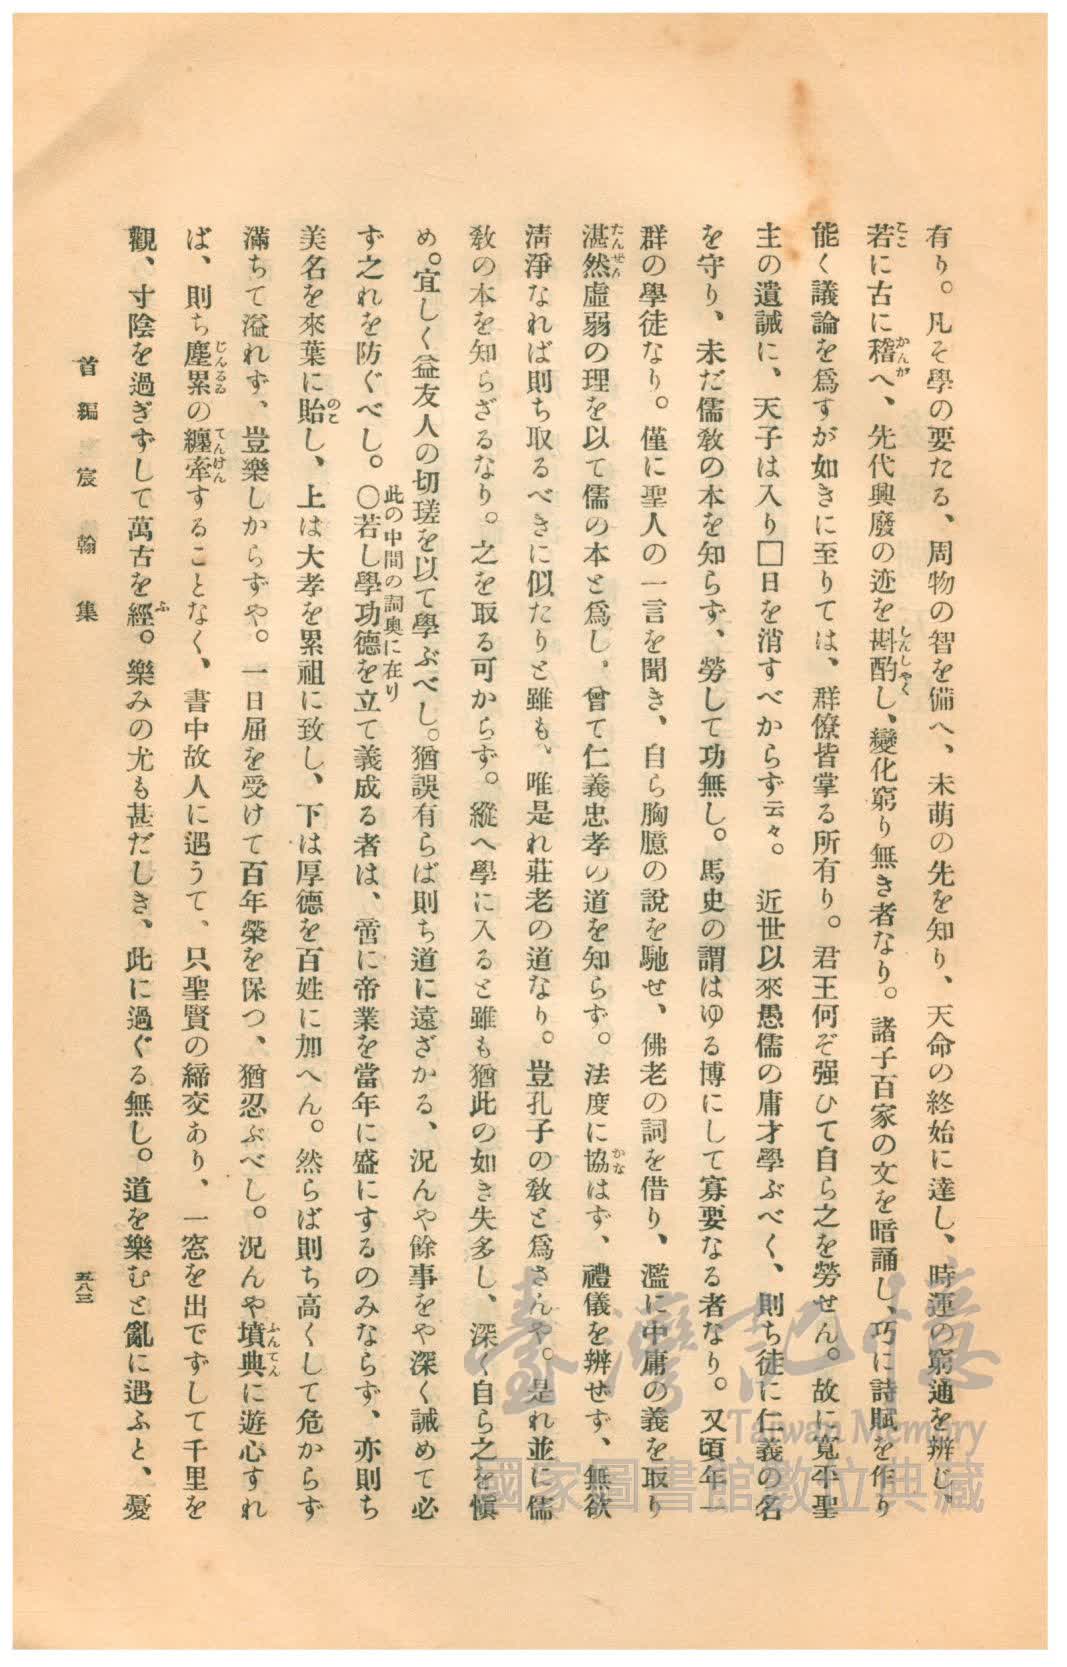 有り。凡そ學の要たる、周物の智を備へ、未萌の先を知り、天命の終始に達し、時運の窮通を辨じ、
若に古に稽へ、先代興廢の迹を斟酌し、變化窮り無き者なり。諸子百家の文を暗誦し、巧に詩賦を作り
能く議論を爲すが如きに至りては、群僚皆掌る所有り。君王何ぞ强ひて自ら之を勞せん。故に寬平聖
主の遺誡に、天子は入り□日を消すべからず云々。近世以來愚儒の庸才學ぶべく、則ち徒に仁義の名
を守り、未だ儒敎の本を知らず、勞して功無し。馬史の謂はゆる博にして寡要なる者なり。又頃年一
群の學徒なり。僅に聖人の一言を聞き、自ら胸臆の說を馳せ、佛老の詞を借り、濫に中庸の義を取り
湛然虛弱の理を以て儒の本と爲し、曾て仁義忠孝の道を知らず。法度に協はず、禮儀を辨せず、無欲
淸淨なれば則ち取るべきに似たりと雖も、唯是れ莊老の道なり。豈孔子の敎と爲さんや。是れ並に儒
敎の本を知らざるなり。之を取る可からず。縱へ學に入ると雖も猶此の如き失多し、深く自ら之を愼
め。宜しく益友人の切瑳を以て學ぶべし。猶誤有らば則ち道に遠ざかる、況んや餘事をや深く誡めて必
ず之れを防ぐべし。〇此の中間の詞奥に在り若し學功德を立て義成る者は、啻に帝業を當年に盛にするのみならず、亦則ち
美名を來葉に貽し、上は大孝を累祖に致し、下は厚德を百姓に加へん。然らば則ち高くして危からず
滿ちて溢れず、豈樂しからずや。一日屈を受けて百年榮を保つ、猶忍ぶべし。況んや墳典に遊心すれ
ば、則ち塵累の纏牽することなく、書中故人に遇うて、只聖賢の締交あり、一窓を出でずして千里を
觀、寸陰を過ぎずして萬古を經。樂みの尤も甚だしき、此に過ぐる無し。道を樂むと亂に遇ふと、憂
首編 宸翰集
五八三
臺灣記憶
Taiwan Memory
國家圖書館數位典藏